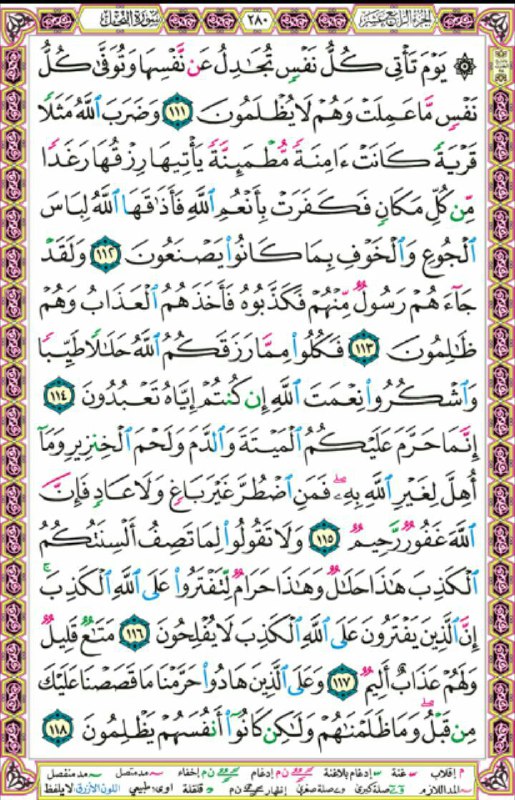 الجزء الرابع عشر ٢٨٠ سورة النحل
۞ يَوْمَ تَأْتِي كُلُّ نَفْسٍ تُجَٰدِلُ عَن نَّفْسِهَا وَتُوَفَّىٰ كُلُّ
نَفْسٍ مَّا عَمِلَتْ وَهُمْ لَا يُظْلَمُونَ ١١١ وَضَرَبَ ٱللَّهُ مَثَلًا
قَرْيَةً كَانَتْ ءَامِنَةً مُّطْمَئِنَّةً يَأْتِيهَا رِزْقُهَا رَغَدًا
مِّن كُلِّ مَكَانٍ فَكَفَرَتْ بِأَنْعُمِ ٱللَّهِ فَأَذَٰقَهَا ٱللَّهُ لِبَاسَ
ٱلْجُوعِ وَٱلْخَوْفِ بِمَا كَانُوا۟ يَصْنَعُونَ ١١٢ وَلَقَدْ
جَآءَهُمْ رَسُولٌ مِّنْهُمْ فَكَذَّبُوهُ فَأَخَذَهُمُ ٱلْعَذَابُ وَهُمْ
ظَٰلِمُونَ ١١٣ فَكُلُوا۟ مِمَّا رَزَقَكُمُ ٱللَّهُ حَلَٰلًا طَيِّبًا
وَٱشْكُرُوا۟ نِعْمَتَ ٱللَّهِ إِن كُنتُمْ إِيَّاهُ تَعْبُدُونَ ١١٤
إِنَّمَا حَرَّمَ عَلَيْكُمُ ٱلْمَيْتَةَ وَٱلدَّمَ وَلَحْمَ ٱلْخِنزِيرِ وَمَآ
أُهِلَّ لِغَيْرِ ٱللَّهِ بِهِۦ ۖ فَمَنِ ٱضْطُرَّ غَيْرَ بَاغٍ وَلَا عَادٍ فَإِنَّ
ٱللَّهَ غَفُورٌ رَّحِيمٌ ١١٥ وَلَا تَقُولُوا۟ لِمَا تَصِفُ أَلْسِنَتُكُمُ
ٱلْكَذِبَ هَٰذَا حَلَٰلٌ وَهَٰذَا حَرَامٌ لِّتَفْتَرُوا۟ عَلَى ٱللَّهِ ٱلْكَذِبَ ۚ
إِنَّ ٱلَّذِينَ يَفْتَرُونَ عَلَى ٱللَّهِ ٱلْكَذِبَ لَا يُفْلِحُونَ ١١٦ مَتَٰعٌ قَلِيلٌ
وَلَهُمْ عَذَابٌ أَلِيمٌ ١١٧ وَعَلَى ٱلَّذِينَ هَادُوا۟ حَرَّمْنَا مَا قَصَصْنَا عَلَيْكَ
مِن قَبْلُ ۖ وَمَا ظَلَمْنَٰهُمْ وَلَٰكِن كَانُوٓا۟ أَنفُسَهُمْ يَظْلِمُونَ ١١٨
م إقلاب غنة إدغام بلاغنة ن م إدغام ن م إخفاء مد متصل مد منفصل
المد اللازم صلة كبرى صلة صغرى إظهار قلقلة طبيعي اللون الأزرق لا يلفظ